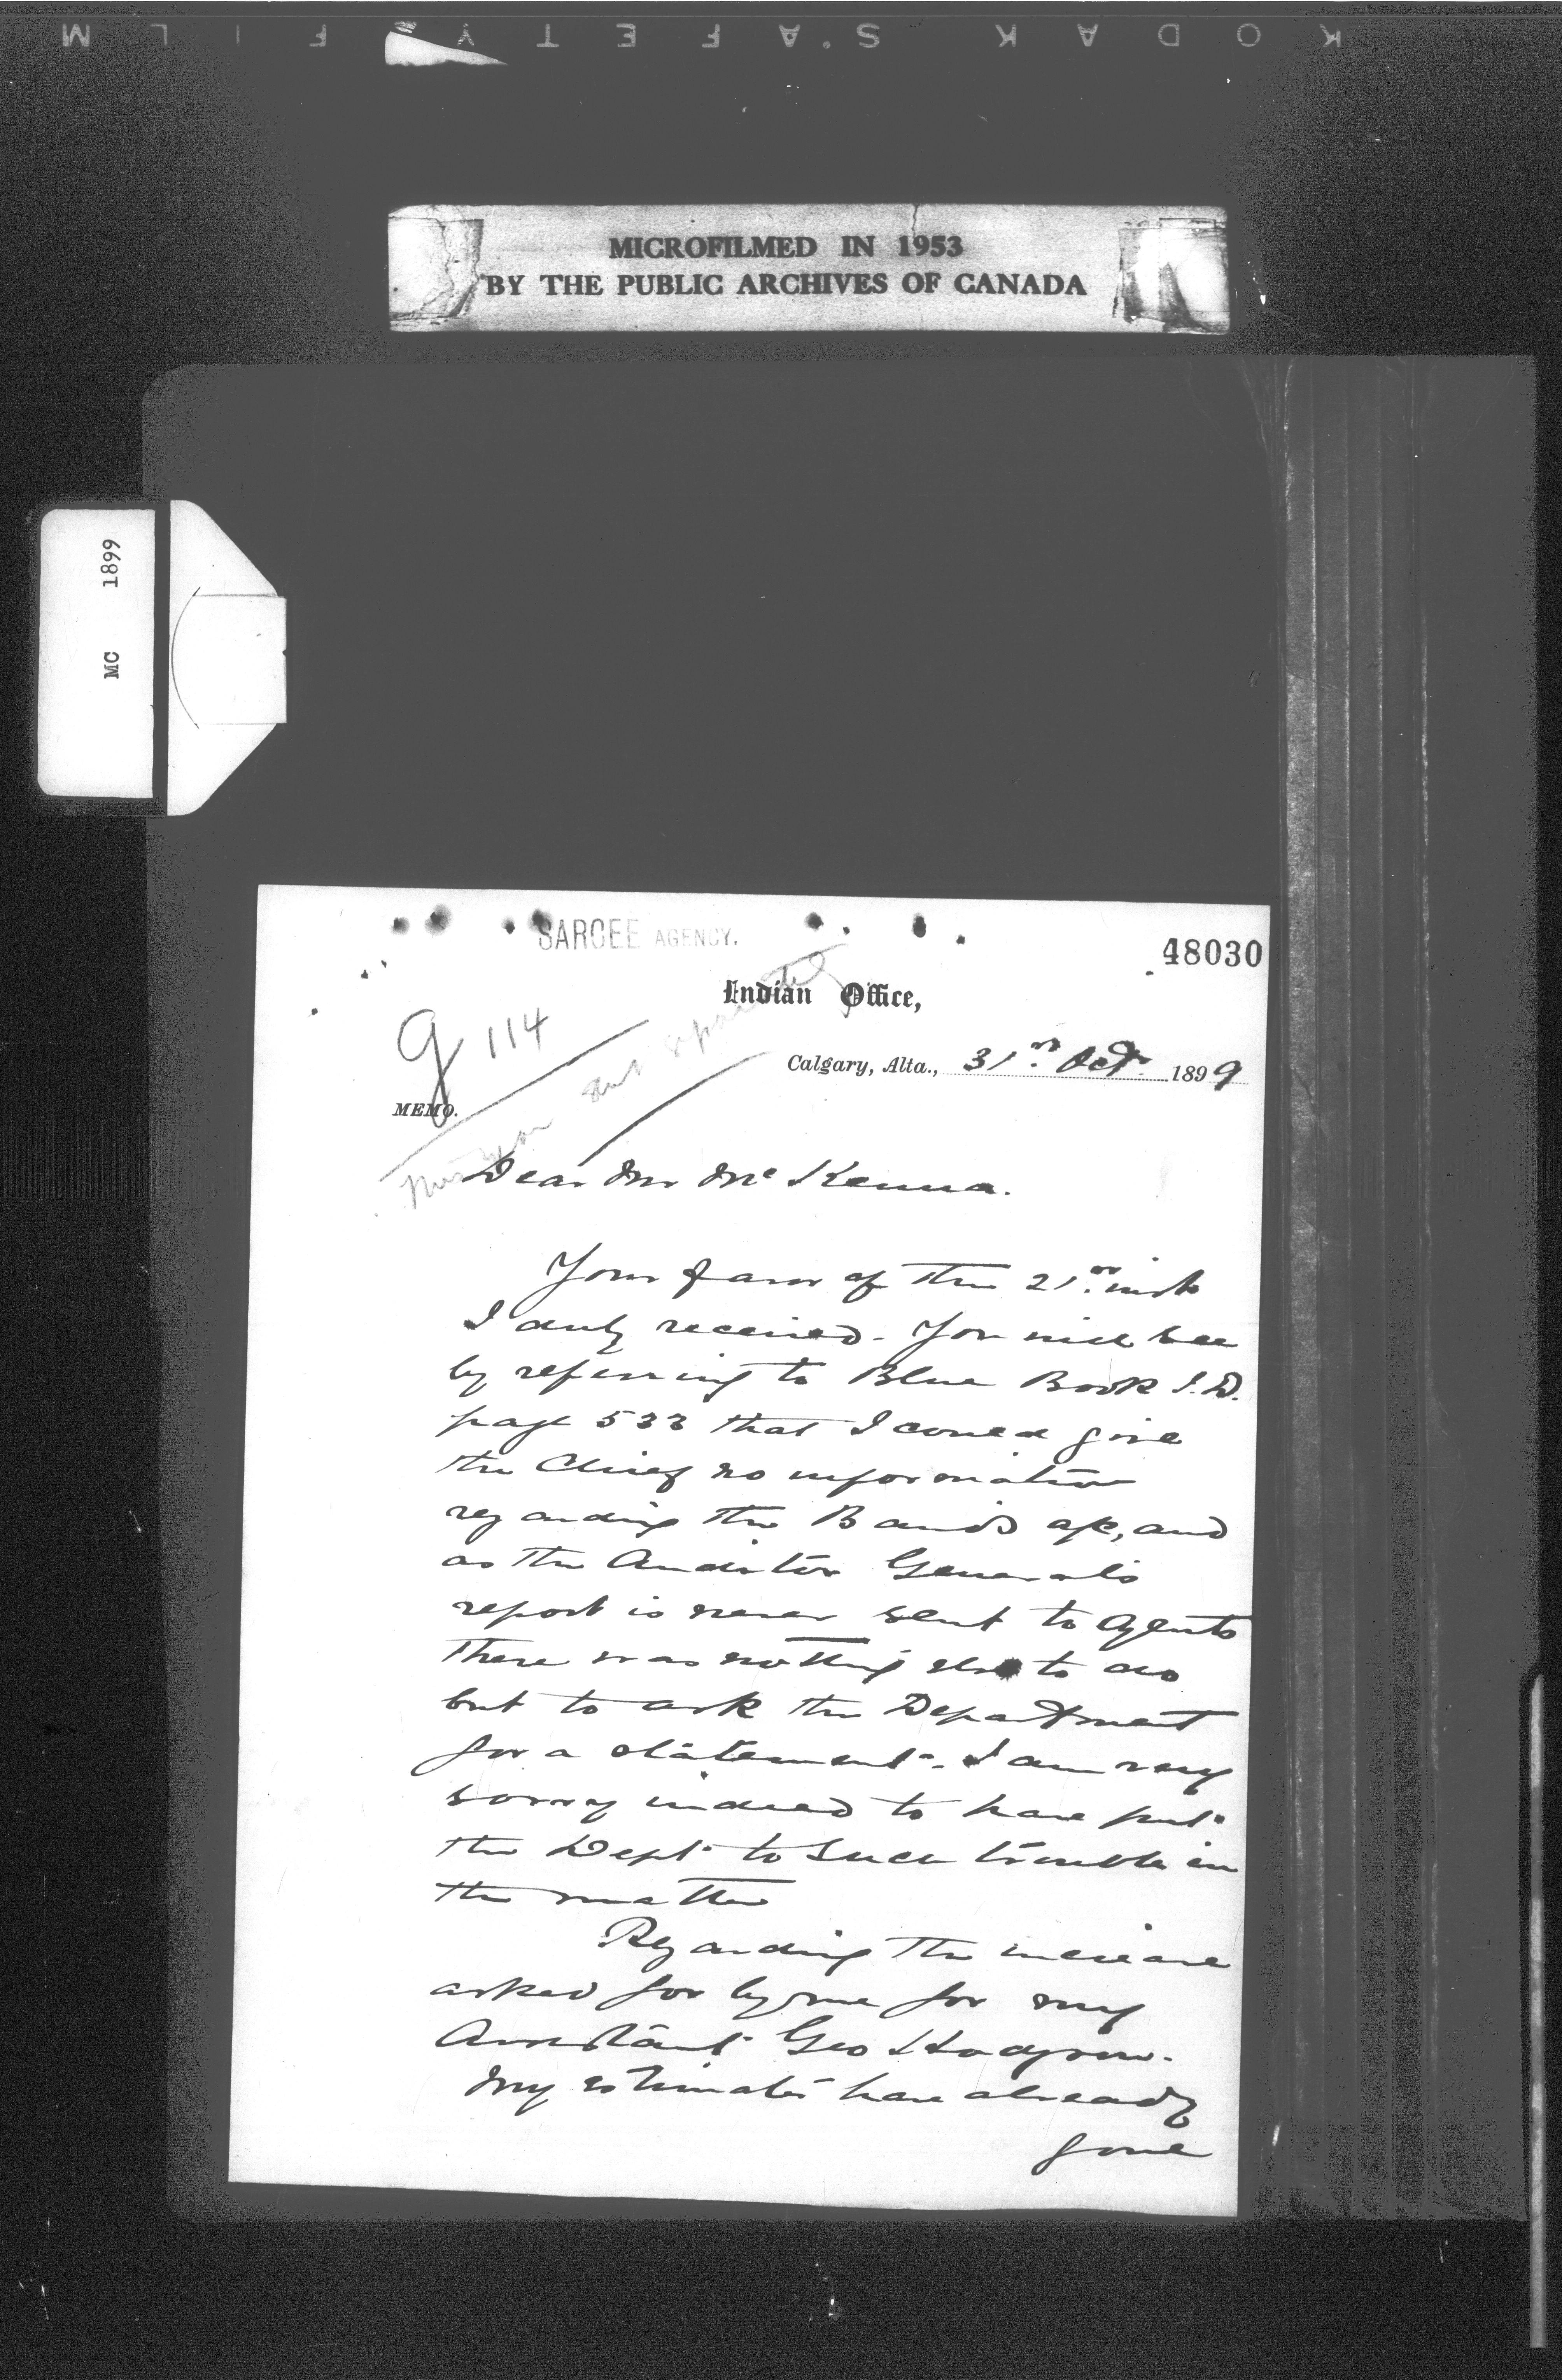 KODAK SAFETY FILM
MICROFILMED IN 1953
BY THE PUBLIC ARCHIVES OF CANADA
MC 1899
SARCEE AGENCY.
48030
Indian Office,
9 114
Calgary, Alta., 31st Oct 1899
MEMO.
sent separately
Dear Mr McKenna.
Your favor of the 21st inst
I duly received. You will see
by referring to Blue Book I.D.
page 533 that I could give
the Chief no information
regarding the Band's a/c, and
as the Auditor Generals
report is never sent to Agents
there was nothing else to do
but to ask the Department
for a statement. I am very
sorry indeed to have put
the Dept to such trouble in
the matter
Regarding the increase
asked for by me for my
Assistant Geo Hodgson.
My estimates have already
gone